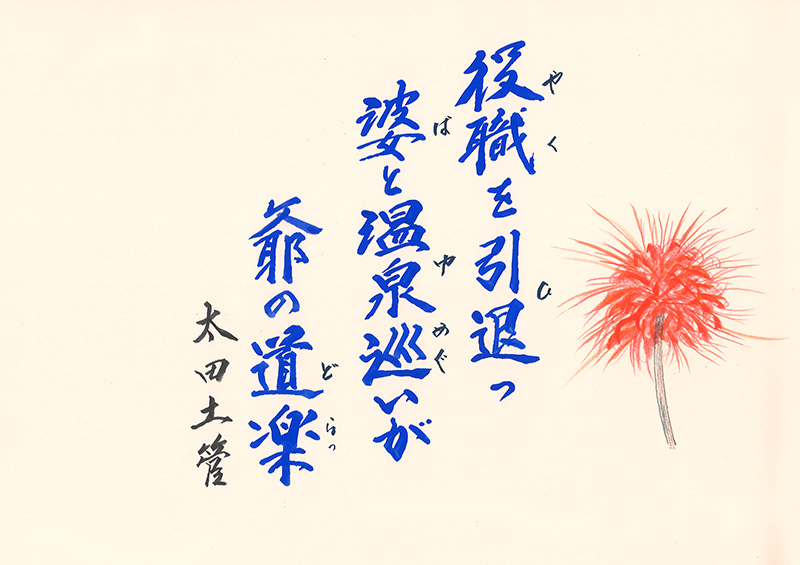 役職を引退っ
やく
ひ
婆と温泉巡いが
ば
ゆ
めぐ
爺の道楽
どらっ
太田土管